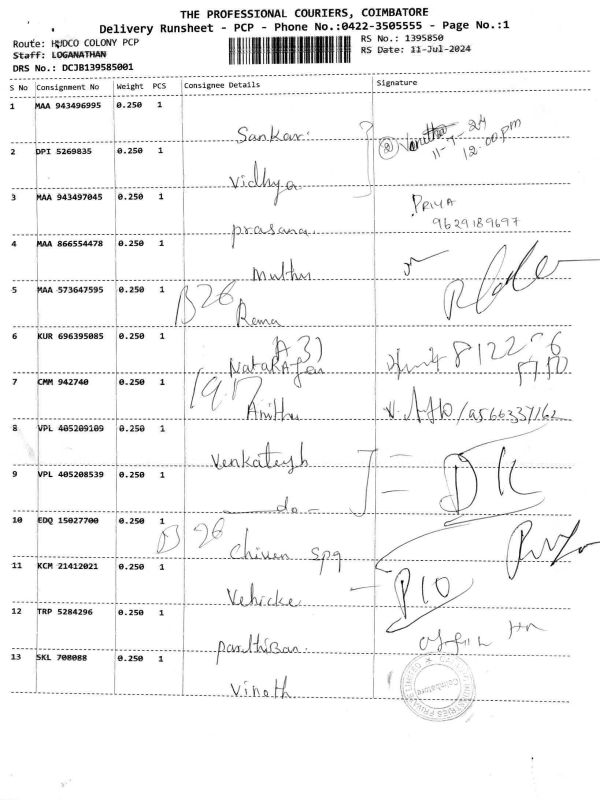 THE PROFESSIONAL COURIERS, COIMBATORE
Delivery Runsheet - PCP - Phone No.:0422-3505555 - Page No.:1
Route: HUDCO COLONY PCP
RS No.: 1395850
Staff: LOGANATHAN
RS Date: 11-Jul-2024
DRS No.: DCJB139585001
S No Consignment No Weight PCS Consignee Details Signature
1 MAA 943496995 0.250 1
Sankar
11-7-24
12.00pm
2 DPI 5269835 0.250 1
Vidhya
3 MAA 943497045 0.250 1
PRIYA
9629189697
prasana
4 MAA 866554478 0.250 1
Muthu
5 MAA 573647595 0.250 1
B 26
Rama
6 KUR 696395085 0.250 1
A 3)
Natarajan
7 CMM 942740 0.250 1
19.D
Anitha
8 VPL 405209109 0.250 1
Venkatesh
9 VPL 405208539 0.250 1
do
10 EDQ 15027700 0.250 1
B 26
Chiven spg
11 KCM 21412021 0.250 1
Vehicke
P10
12 TRP 5284296 0.250 1
parthiban
13 SKL 708088 0.250 1
Vinoth